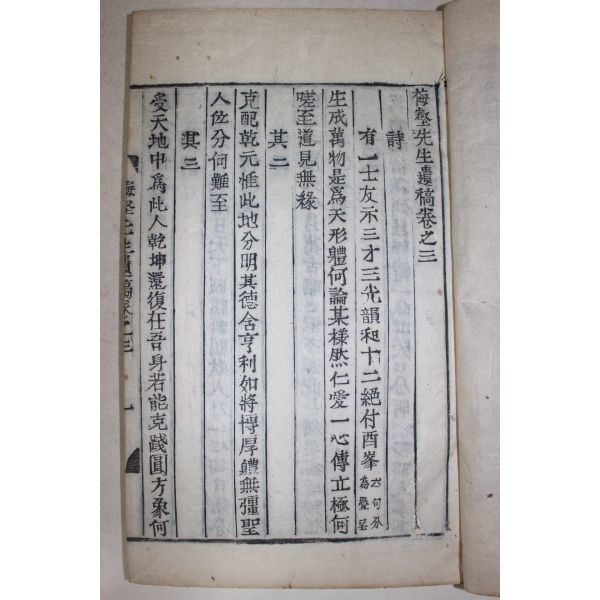 梅壑先生遺稿卷之三
詩
有一士友示三才三光韻和十二絶付酉峯
生成萬物是爲天形軆何論某樣然仁愛一心傳立極何
嗟至道見無緣
其二
克配乾元惟此地分明其德含亨利如將博厚軆無彊聖
人位分何難至
其三
受天地中爲此人乾坤還復在吾身若能克踐圓方象何
梅壑先生遺稿卷之三 一